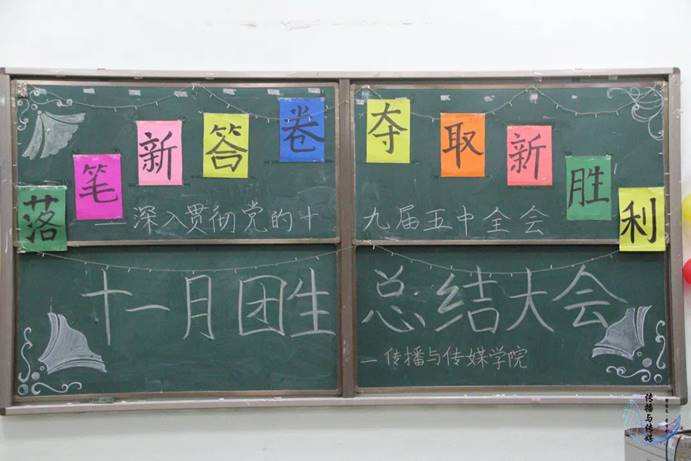 落笔新答卷 夺取新胜利
—深入贯彻党的十九届五中全会
十一月团生总结大会
—传播与传媒学院
传播与传媒